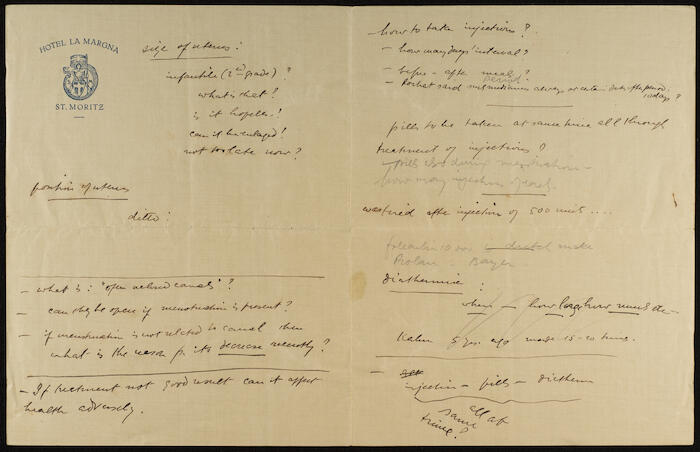 HOTEL LA MARGNA
ST. MORITZ
size of uterus:
infantile (2nd grade)?
what is that?
is it hopeless!
can it be enlarged!
not too late now?
position of uterus
ditto:
- what is: "open canals"?
- can they be open if menstruation is present?
- if menstruation is not related to canal then
what is the reason for its decrease recently?
- If treatment not good result can it affect
health adversely.
- how to take injections?
- how many days' interval?
- before - after meal?
period
- said
10 days?
pills to be taken at same time all through
treatment of injections?
- pills also during menstruation -
how many injections
was tired after injection of 500 units....
is dutch make
Prolan - Bayer
Diathermie:
where - how long how much
5 yrs. ago made 15-20 times.
- injection - pills - diatherm
all at
same
time?